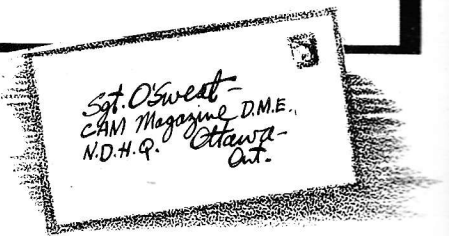 Sgt. O'Sweat-
CAM Magazine D.M.E.,
N.D.H.Q. Ottawa-
Ont.